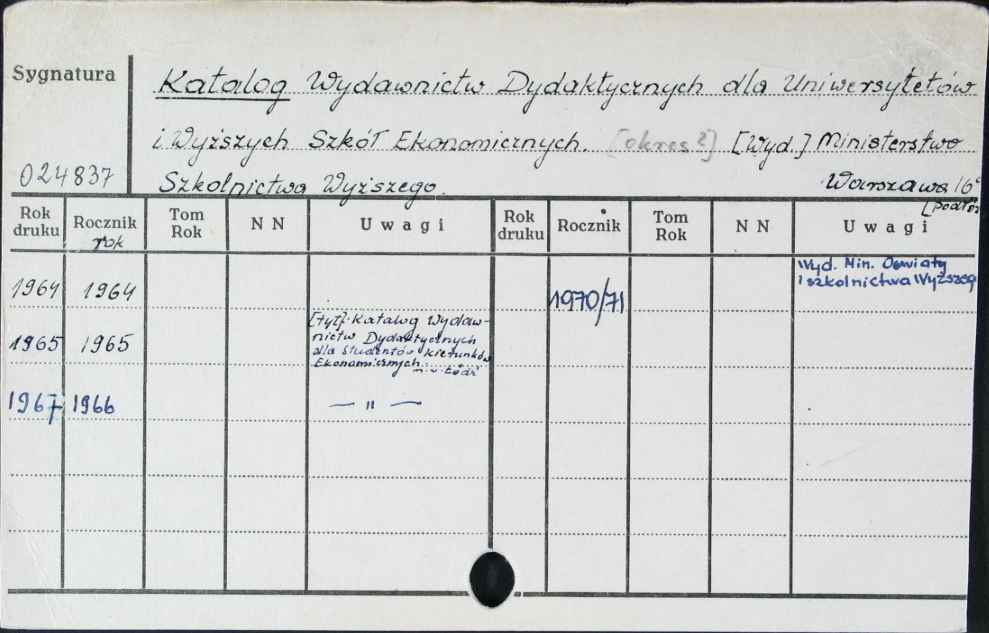 Sygnatura
Katalog Wydawnictw Dydaktycznych dla Uniwersytetów
i Wyższych Szkół Ekonomicznych. [okres?] [Wyd.] Ministerstwo
024837
Szkolnictwa Wyższego. Warszawa 16°
Rok druku Rocznik rok Tom Rok NN Uwagi Rok druku Rocznik Tom Rok NN Uwagi
1964 1964 1970/71 Wyd. Min. Oświaty
i szkolnictwa Wyższego
1965 1965 [tyt]. Katalog Wydaw-
nictw Dydaktycznych
dla studentów kierunków
Ekonomicznych.
Łódź
1967 1966 — " —